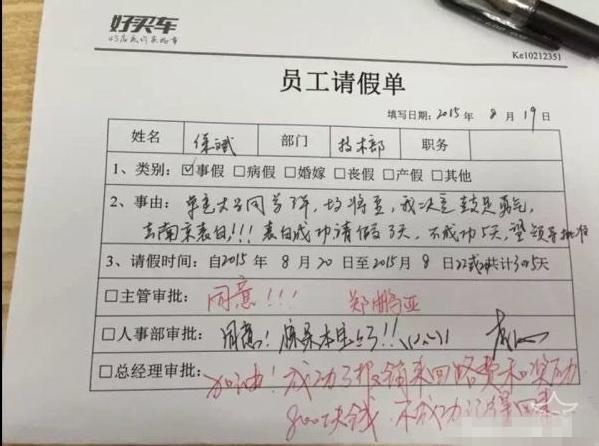 好买车
Ke10212351
员工请假单
填写日期：2015年 8月 19日
姓名 徐斌 部门 技术部 职务
1、类别：☑事假 □病假 □婚嫁 □丧假 □产假 □其他
2、事由：大学同学3年，七夕将至，我决定鼓足勇气，
去南京表白!!! 表白成功请假3天，不成功5天，望领导批准
3、请假时间：自2015年 8月20日至2015年 8月 22或24共计3或5天
□主管审批： 同意!!! 郑鹏亚
□人事部审批： 同意!
□总经理审批： 加油! 成功了报销来回路费和奖励
800块钱 不成功记得回来